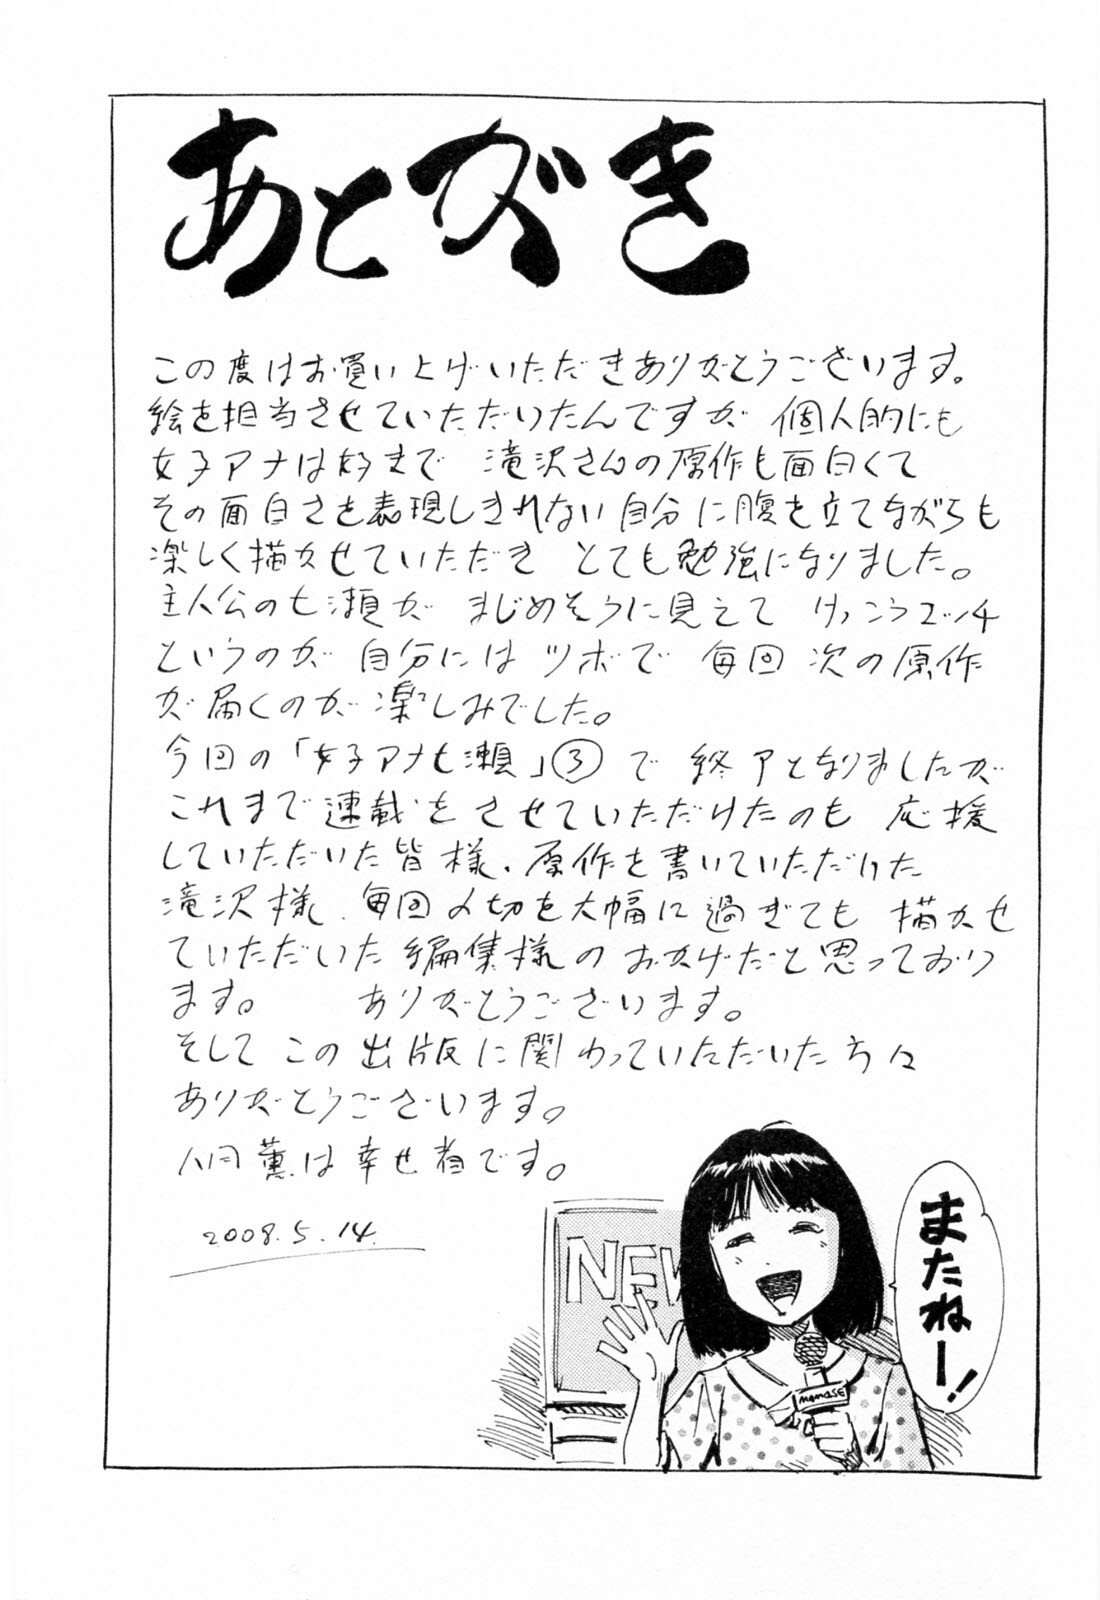 あとがき
この度はお買い上げいただきありがとうございます。
絵を担当させていただいたんですが 個人的にも
女子アナは好きで 滝沢さんの原作も面白くて
その面白さを表現しきれない自分に腹を立てながらも
楽しく描かせていただき とても勉強になりました。
主人公の七瀬が まじめそうに見えて けっこうエッチ
というのが 自分にはツボで 毎回 次の原作
が届くのが楽しみでした。
今回の「女子アナ七瀬」③で 終了となりましたが
これまで連載をさせていただけたのも 応援
していただいた皆様、原作を書いていただけた
滝沢様、毎回〆切を大幅に過ぎても 描かせ
ていただいた編集様のおかげだと思っており
ます。 ありがとうございます。
そして この出版に関わっていただいた方々
ありがとうございます。
八月薫は幸せ者です。
2008.5.14.
NEW
またねー!